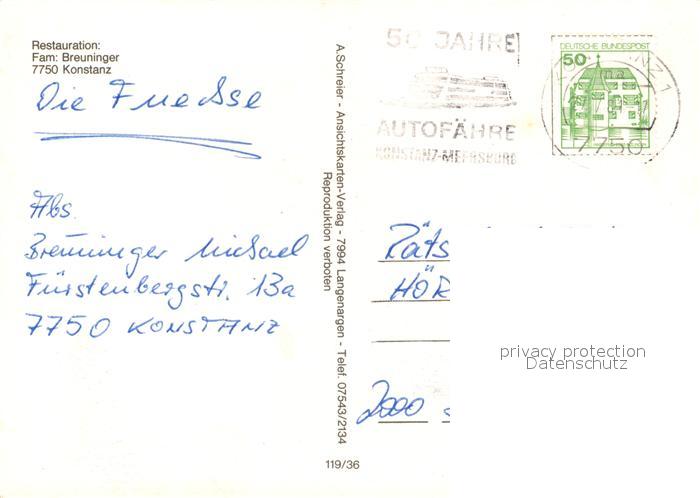 Restauration:
Fam: Breuninger
7750 Konstanz
Die Fuechse
Abs.
Breuninger Michael
Fürstenbergstr. 13a
7750 KONSTANZ
A. Schreier - Ansichtskarten-Verlag - 7994 Langenargen - Telef. 07543/2134
Reproduktion verboten
119/36
50 JAHRE
AUTOFÄHRE
KONSTANZ-MEERSBURG
DEUTSCHE BUNDESPOST
50
7750
Räts
HÖR
2000
privacy protection
Datenschutz